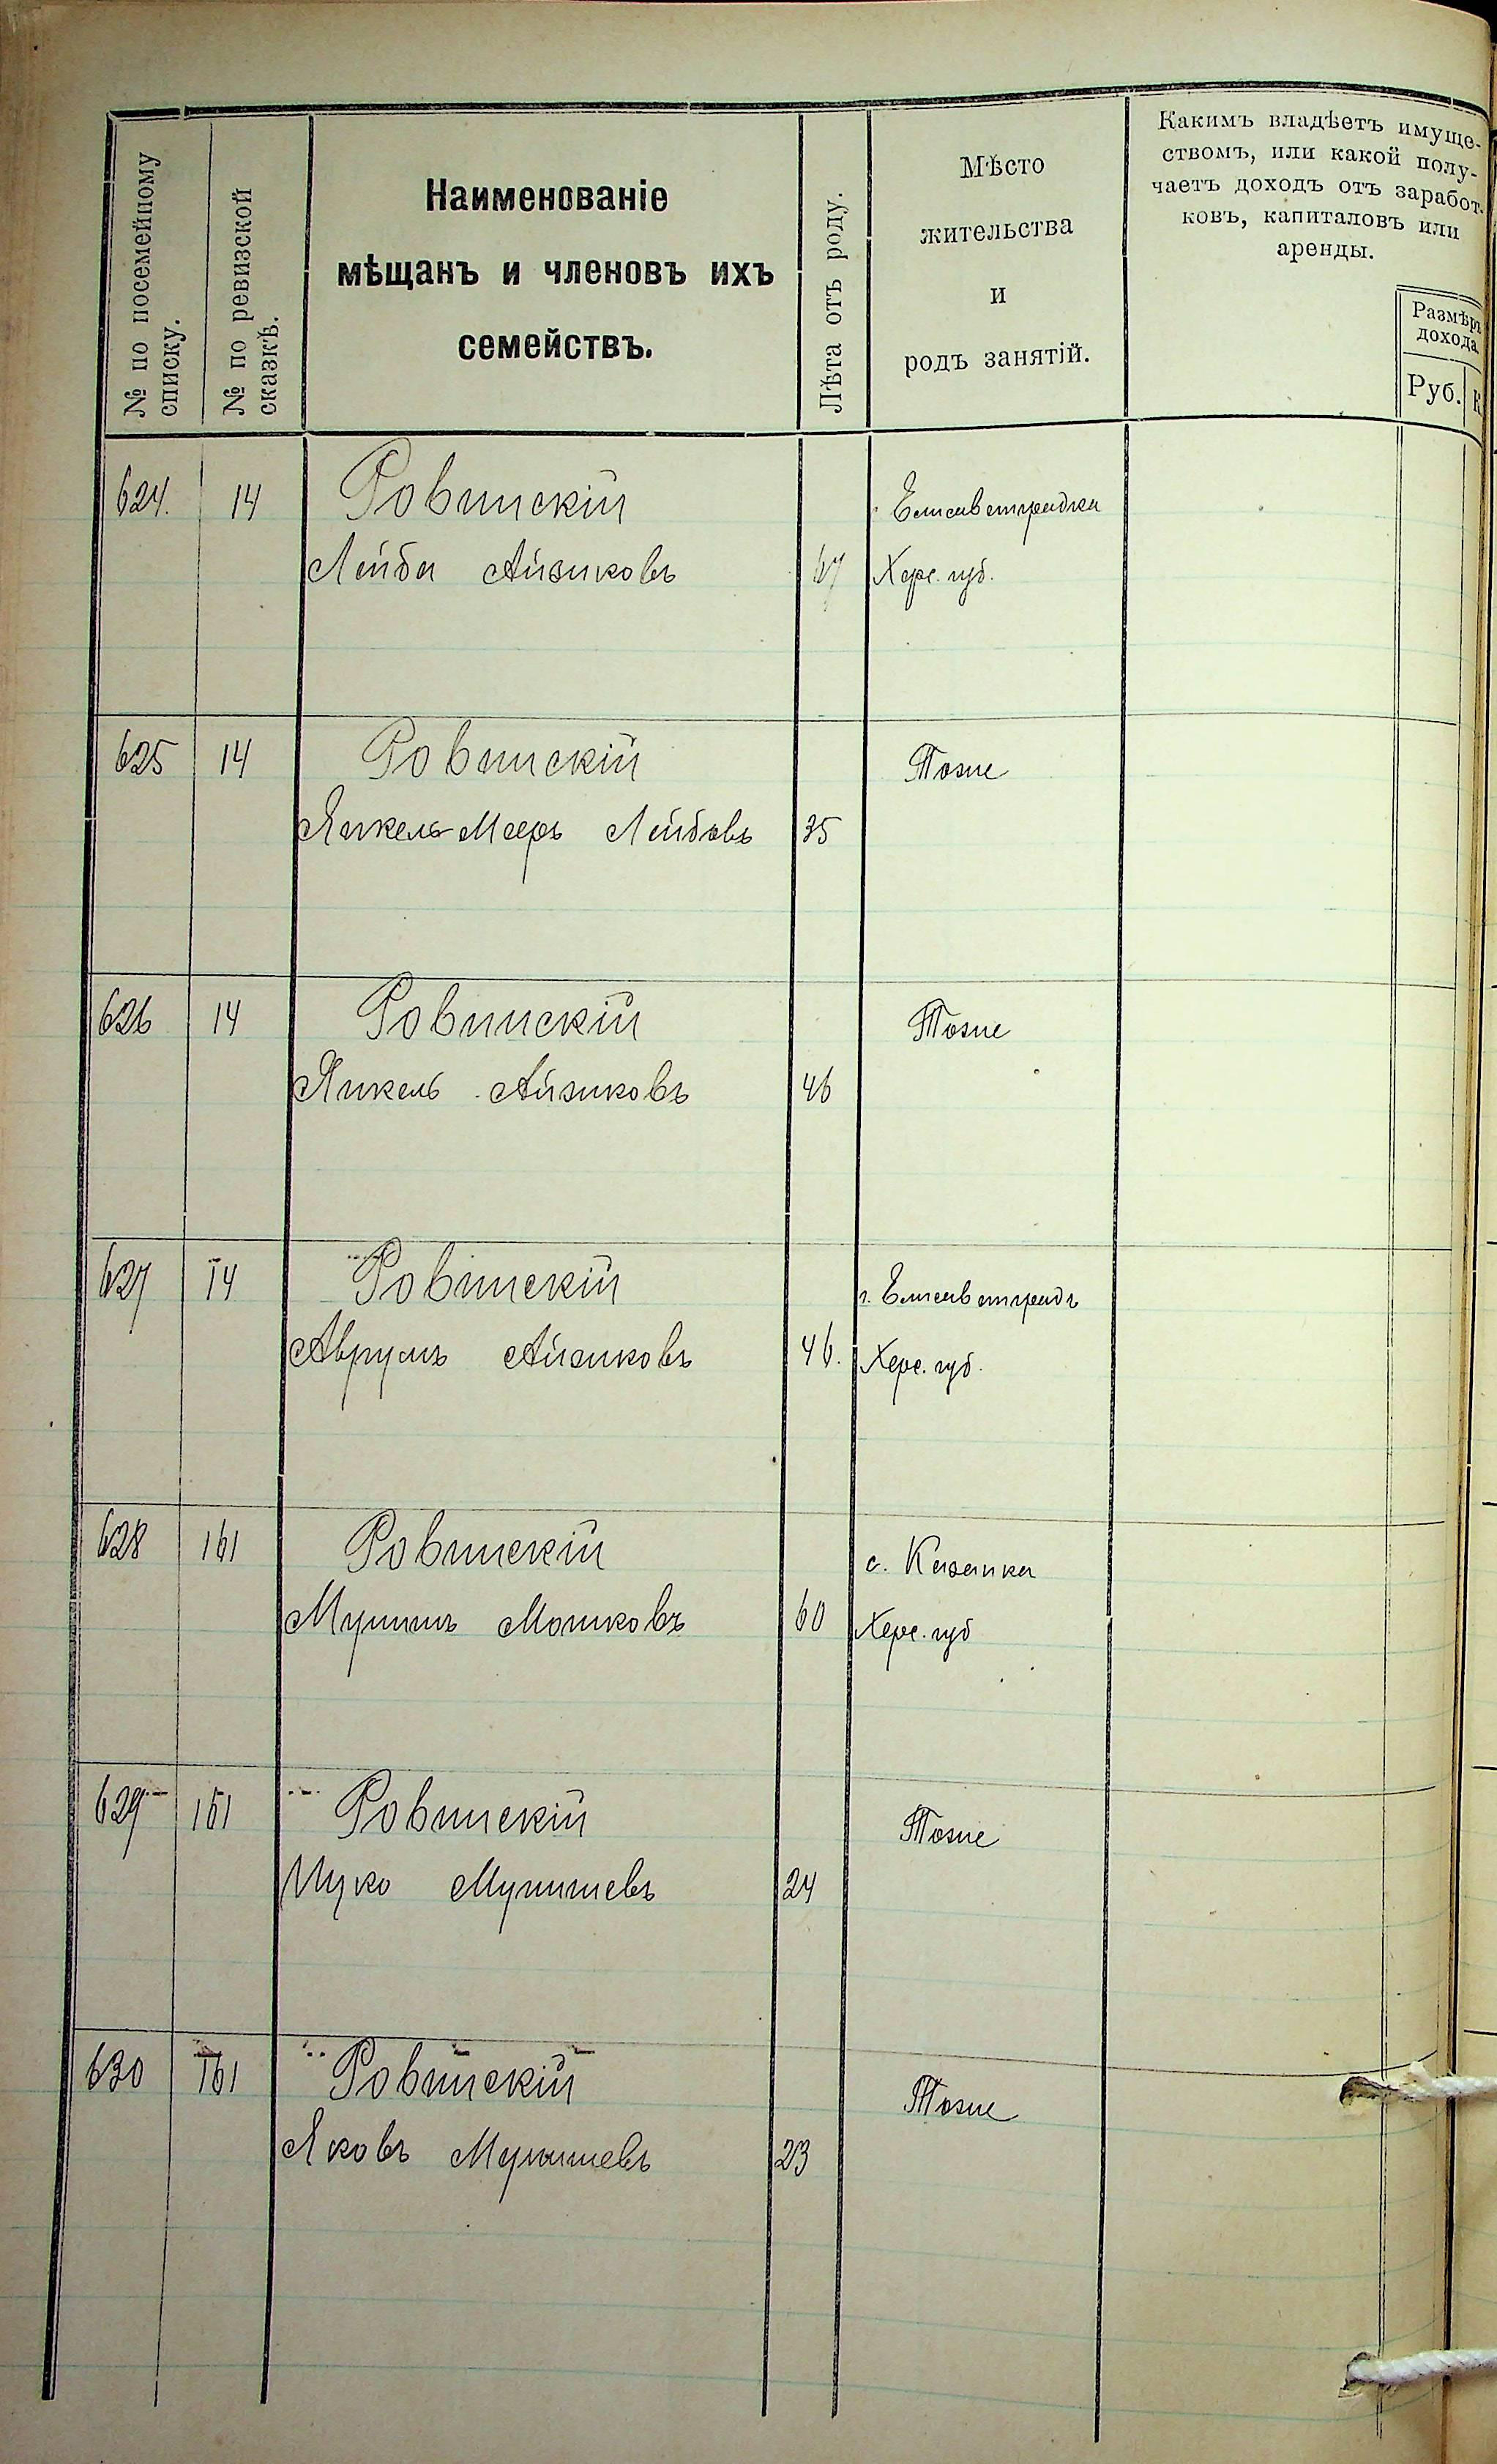 № по посемейному
списку.
№ по ревизской
сказкѣ.
Наименованіе
мѣщанъ и членовъ ихъ
семействъ.
Лѣта отъ роду.
Мѣсто
жительства
и
родъ занятій.
Какимъ владѣетъ имуще-
ствомъ, или какой полу-
чаетъ доходъ отъ заработ-
ковъ, капиталовъ или
аренды.
Размѣръ
дохода
Руб. К
624. 14 Ровинскій Елисаветградка
Лейба Айзиковъ 67 Херс. губ.
625 14 Ровинскій Тоже
Янкель-Мееръ Лейбовъ 35
626 14 Ровинскій Тоже
Янкель Айзиковъ 46
627 14 Ровинскій г. Елисаветградъ
Аврумъ Айзиковъ 46. Херс. губ.
628 161 Ровинскій с. Казанка
Мунишъ Мошковъ 60 Херс. губ
629 161 Ровинскій Тоже
Ицко Мунишевъ 24
630 161 Ровинскій Тоже
Яковъ Мунишевъ 23